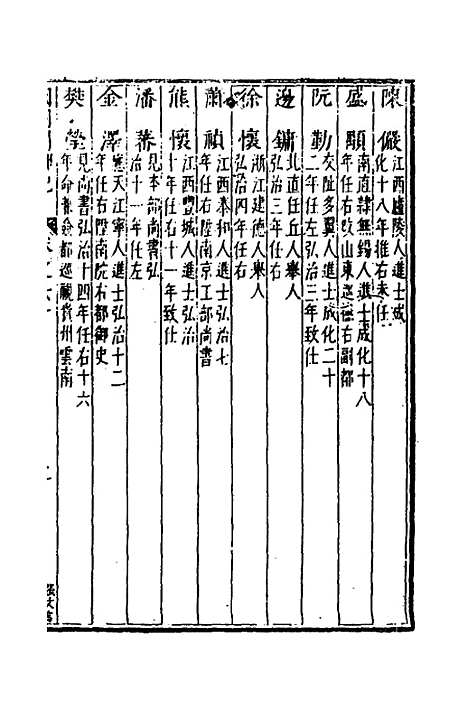 陳儼 江西廬陵人進士成
化十八年推右未任
盛顒 南直隸無錫人進士成化十八
年任右改山東巡撫右副都
阮勤 交趾多翼人進士成化二十
二年任左弘治三年致仕
邊鏞 北直任丘人舉人
弘治三年任右
徐懷 浙江建德人舉人
弘治四年任右
蕭禎 江西泰和人進士弘治七
年任右陞南京工部尚書
熊懷 江西豐城人進士弘治
十年任右十一年致仕
潘蕃 見本部尚書弘
治十一年任左
金澤 應天江寧人進士弘治十二
年任右陞南院右都御史
樊瑩 見尚書弘治十四年任右十六
年命兼僉都巡視貴州雲南